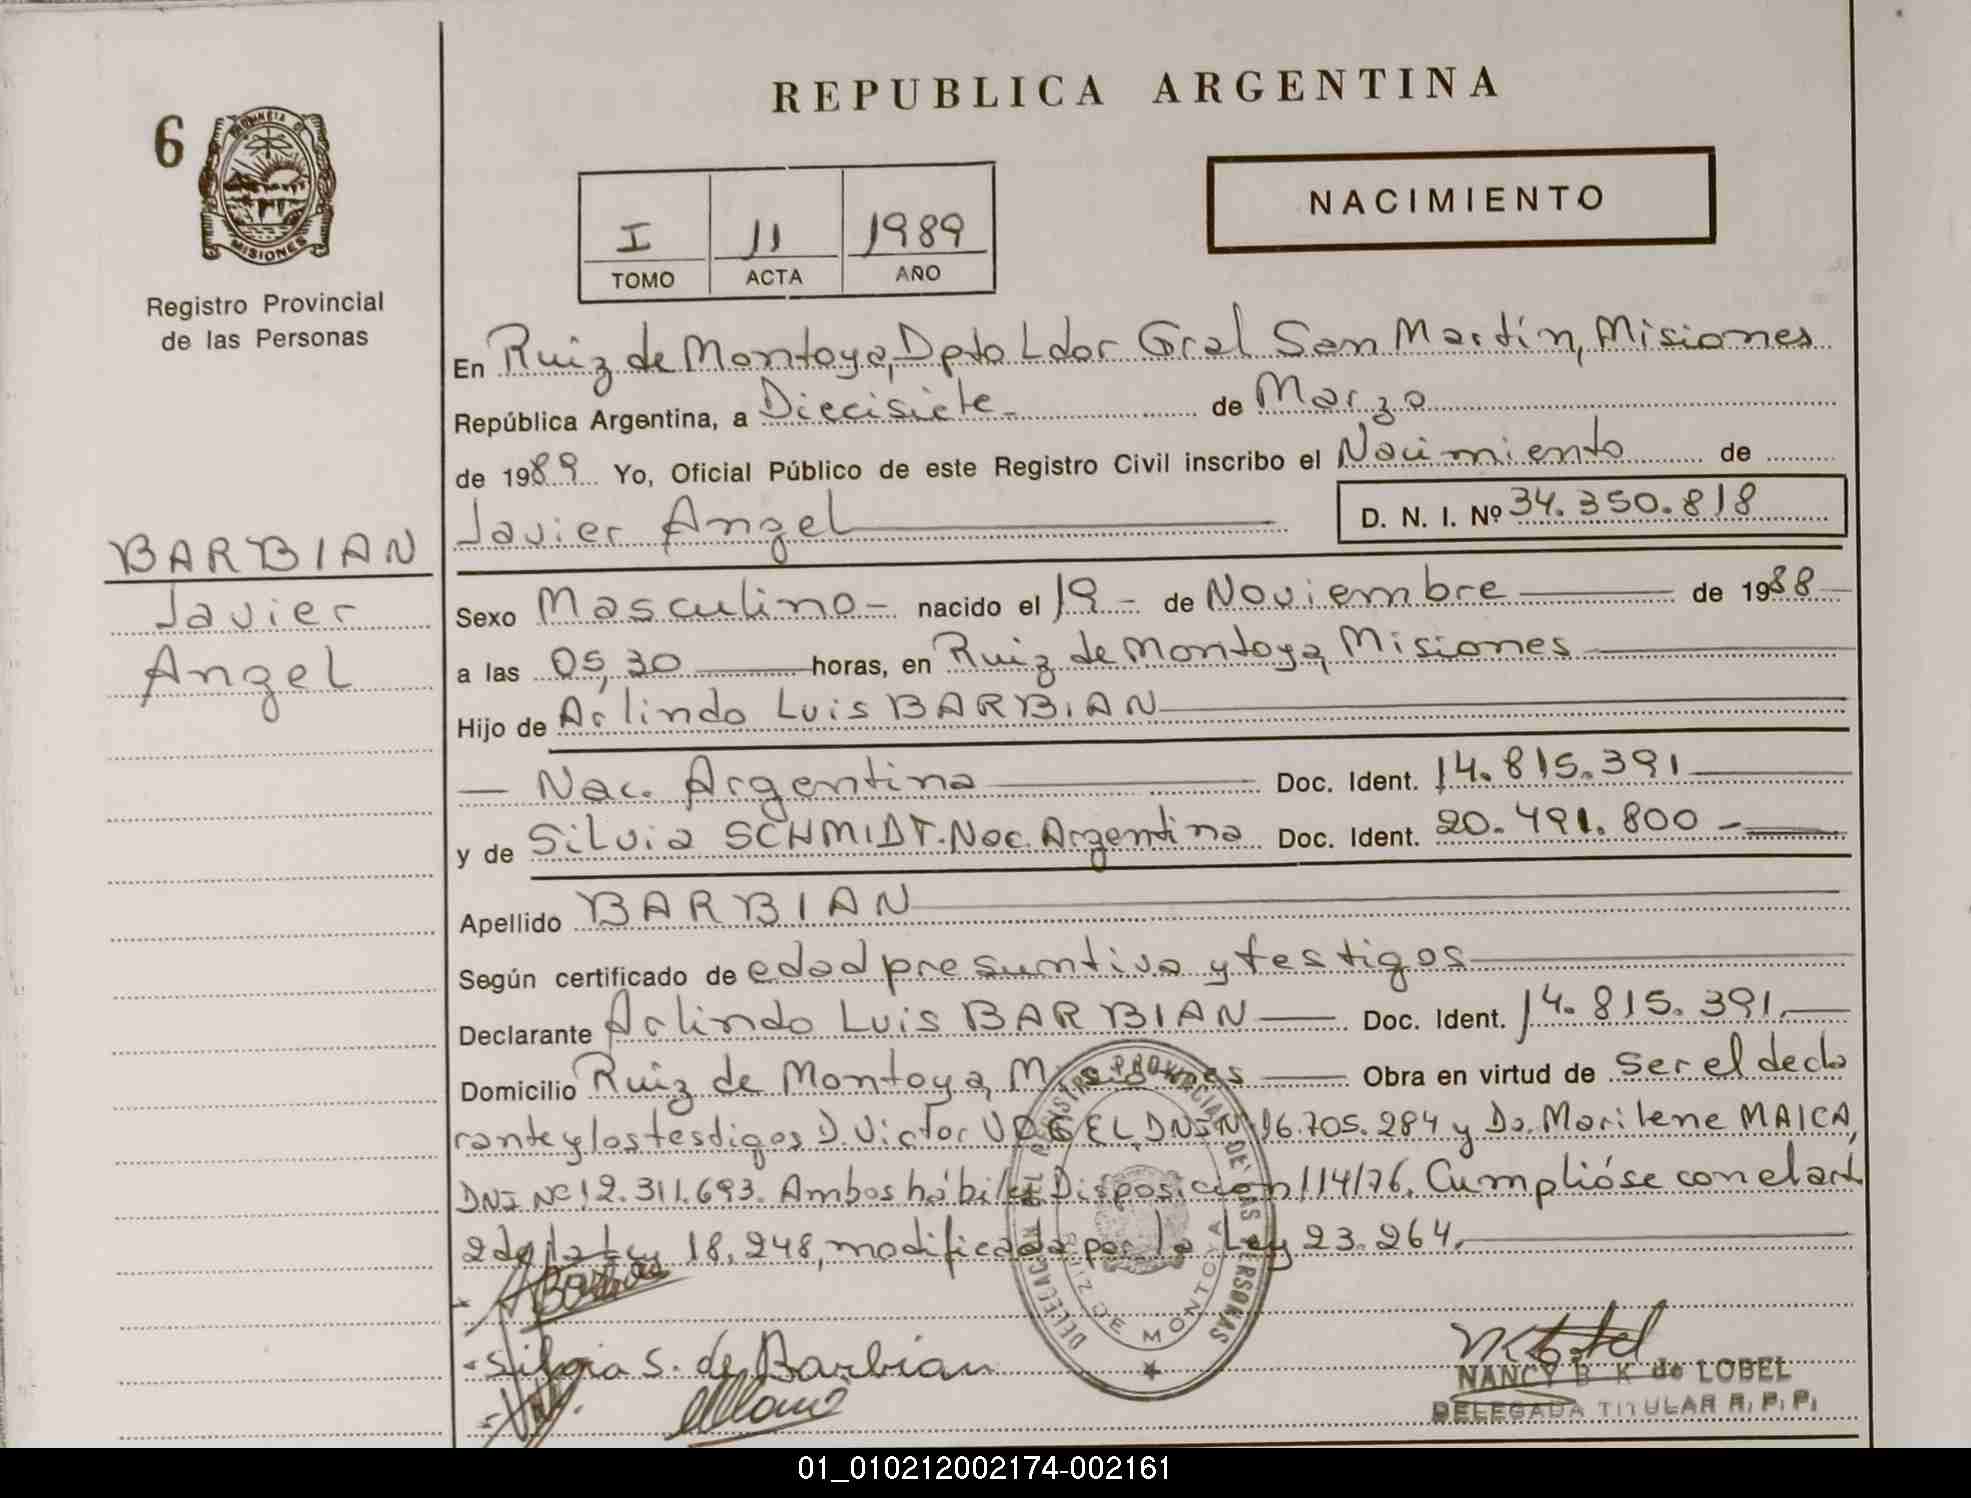 REPUBLICA ARGENTINA
6
PROVINCIA DE
MISIONES
Registro Provincial
de las Personas
NACIMIENTO
I 11 1989
TOMO ACTA AÑO
En Ruiz de Montoya, Dpto Ldor Gral San Martín, Misiones
República Argentina, a Diecisiete de Marzo
de 1989 Yo, Oficial Público de este Registro Civil inscribo el Nacimiento de
Javier Angel D. N. I. Nº 34.350.818
BARBIAN
Javier
Angel
Sexo Masculino - nacido el 19 - de Noviembre de 1988
a las 05,30 horas, en Ruiz de Montoya, Misiones
Hijo de Arlindo Luis BARBIAN
— Nac. Argentina Doc. Ident. 14.815.391
y de Silvia SCHMIDT. Nac. Argentina Doc. Ident. 20.491.800 -
Apellido BARBIAN
Según certificado de edad presuntiva y testigos
Declarante Arlindo Luis BARBIAN Doc. Ident. 14.815.391.
Domicilio Ruiz de Montoya, Misiones Obra en virtud de ser el decla
rante y los testigos D. Victor VOGEL, DNI Nº 16.705.284 y Da. Marilene MAICA,
DNI Nº 12.311.693. Ambos hábiles Disposición 114/76. Cumplióse con el art.
2 de la Ley 18.248, modificada por la Ley 23.264.
DELEGACION DEL REGISTRO PROVINCIAL DE LAS PERSONAS
RUIZ DE MONTOYA
Silvia S. de Barbian
NANCY B K de LOBEL
DELEGADA TITULAR R. P. P.
01_010212002174-002161